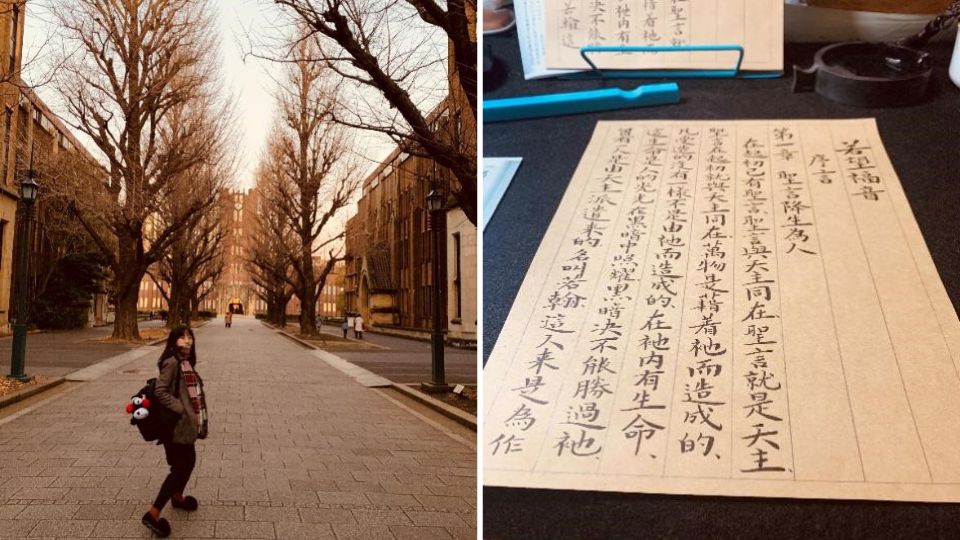 若望福音
序言
第一章 聖言降生為人
在起初已有聖言聖言與天主同在聖言就是天主、
聖言在起初就與天主同在萬物是藉着祂而造成的、
凡受造的沒有一樣不是由祂而造成的在祂內有生命、
這生命是人的光光在黑暗中照耀黑暗決不能勝過祂、
曾有人是由天主派遣來的名叫若翰這人来是為作
聖言
祂內有
決不能
若翰這